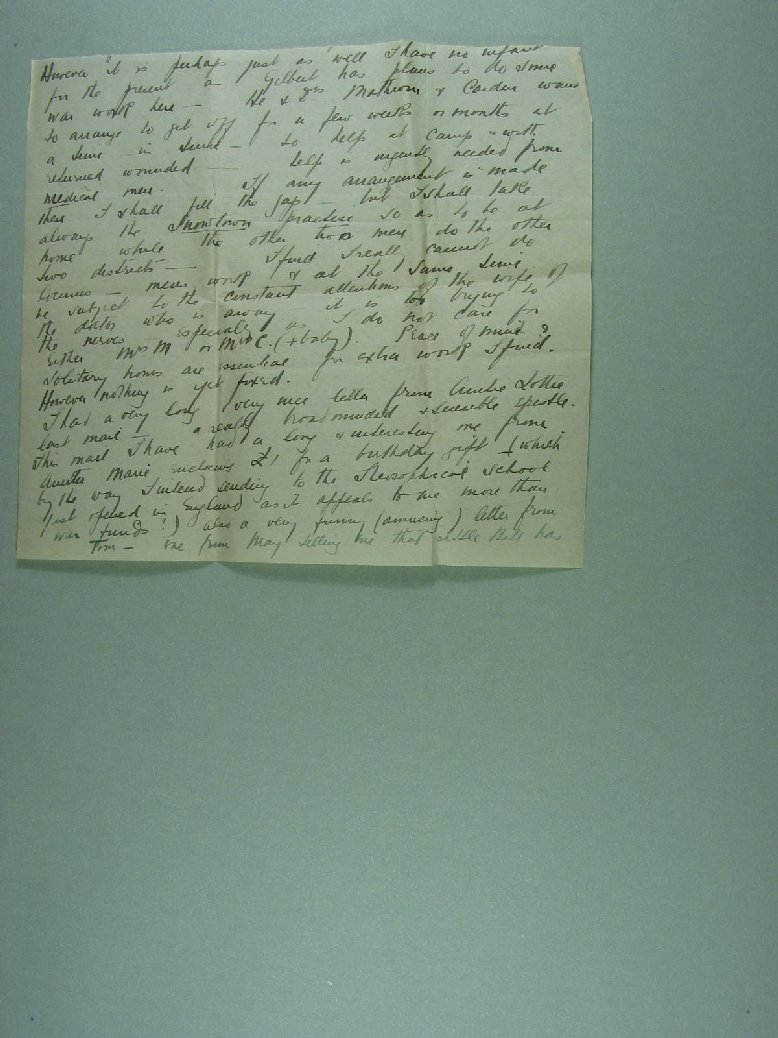 However it is perhaps just as well I have no infant
for the present as Gilbert has plans to do some
war work here — He & Drs Mathews & Cardew want
to arrange to get off for a few weeks or months at
a time in turns — to help at camp & with
returned wounded — help is urgently needed from
medical men. If any arrangement is made
then I shall fill the gap — but I shall take
always the Snowtown practise so as to be at
home while the other two men do the other
two districts — I find I really cannot do
locums — mens work & at the same time
be subject to the constant attentions of the wife of
the doctor who is away it is too trying to
the nerves especially as I do not care for
Either Mrs M or Mrs C. (+ baby). Peace of mind &
solitary hours are essential for extra work I find.
However nothing is yet fixed.
I had a very long very nice letter from Auntie Lottie
last mail — a really broadminded & sensible epistle.
This mail I have had a long & interesting one from
Auntie Marie enclosing £1 for a birthday gift — (which
by the way I intend sending to the Theosophical School
just opened in England as it appeals to me more than
war funds!) also a very funny (amusing) letter from
Tom — one from May telling me that little Bill has